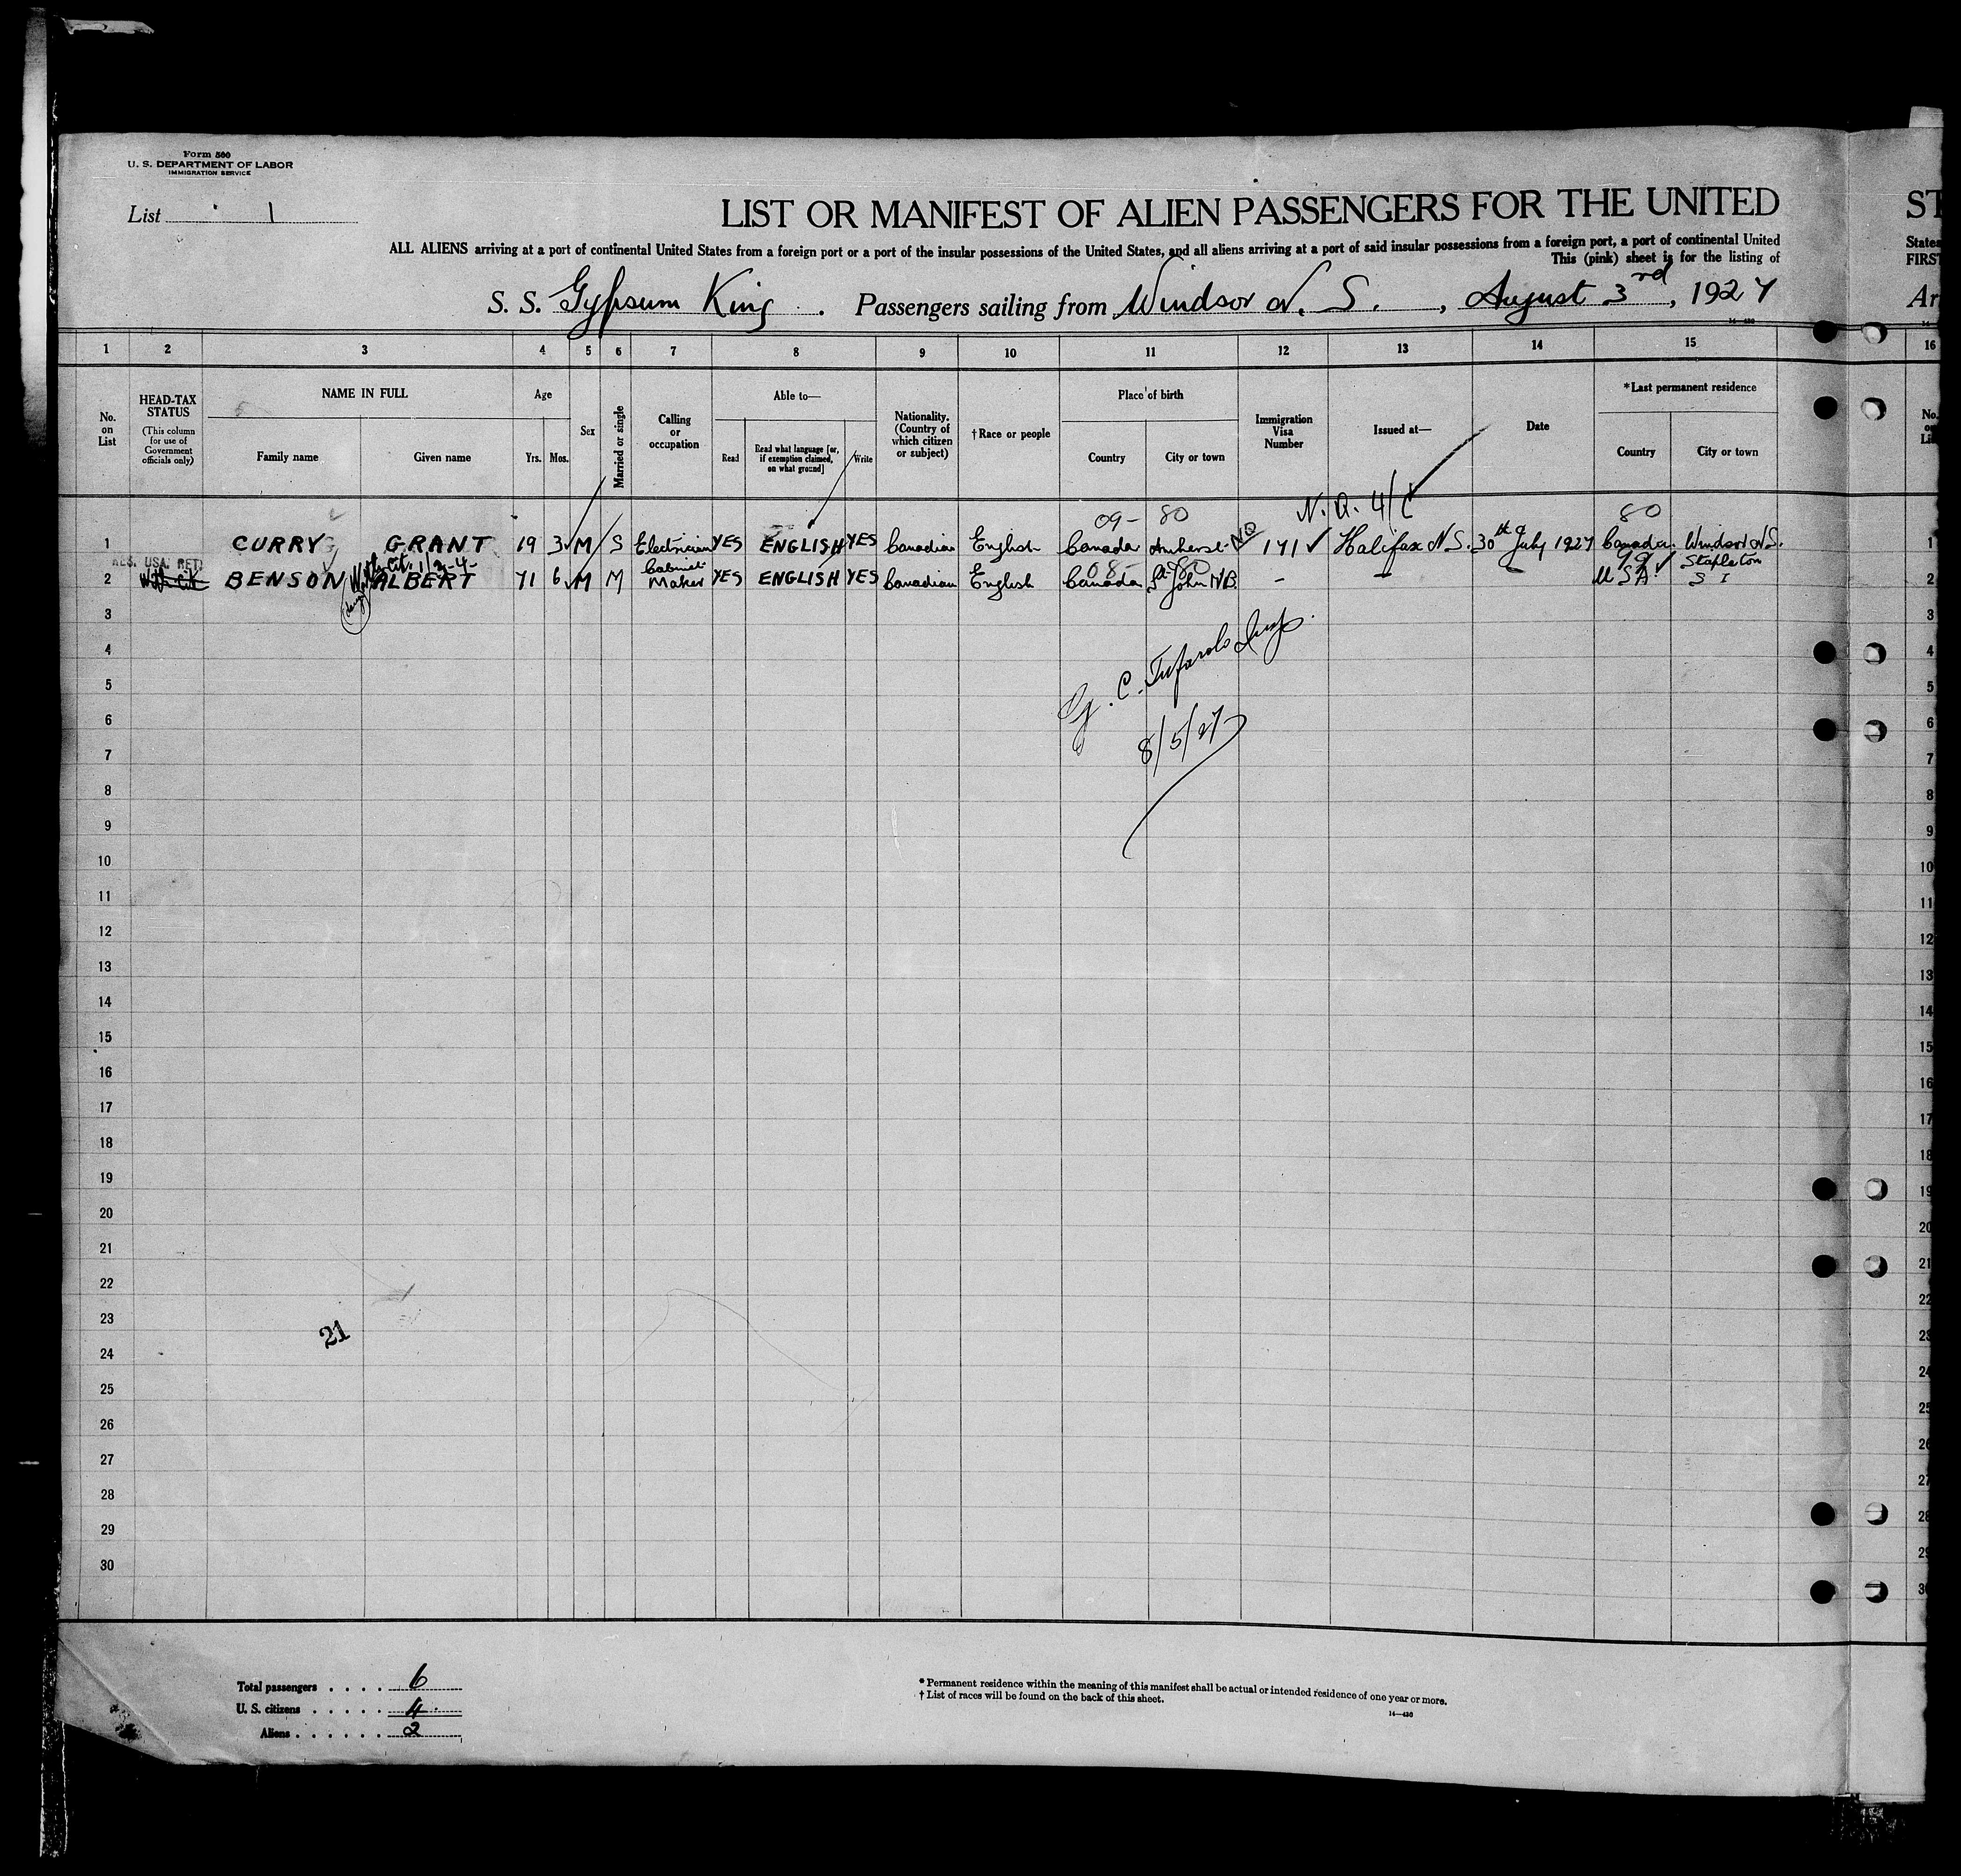 Form 500
U. S. DEPARTMENT OF LABOR
IMMIGRATION SERVICE
List 1
LIST OR MANIFEST OF ALIEN PASSENGERS FOR THE UNITED ST
ALL ALIENS arriving at a port of continental United States from a foreign port or a port of the insular possessions of the United States, and all aliens arriving at a port of said insular possessions from a foreign port, a port of continental United States
This (pink) sheet is for the listing of FIRST
S. S. Gypsum King . Passengers sailing from Windsor N. S. , August 3rd , 1927 Ar
14—430
1 2 3 4 5 6 7 8 9 10 11 12 13 14 15 16
No. on List
HEAD-TAX STATUS
(This column for use of Government officials only)
NAME IN FULL
Family name
Given name
Age
Yrs. Mos.
Sex
Married or single
Calling or occupation
Able to—
Read
Read what language [or, if exemption claimed, on what ground]
Write
Nationality. (Country of which citizen or subject)
†Race or people
Place of birth
Country
City or town
Immigration Visa Number
Issued at—
Date
*Last permanent residence
Country
City or town
N. Q. 4/c
09- 80 80
1 CURRY GRANT 19 3 M S Electrician YES ENGLISH YES Canadian English Canada Amherst NQ 171 Halifax N S. 30th July 1927 Canada Windsor N S. 1
RES. USA. RET.
With Cit. 1/3-4-
08- 80 99
2 With cit BENSON ALBERT 71 6 M M Cabinet Maker YES ENGLISH YES Canadian English Canada St John NB. - - - U S A. Stapleton S I 2
3
4
5
6
7
8
9
10
11
12
13
14
15
16
17
18
19
20
21
22
23
24
25
26
27
28
29
30
8/5/27
21
Total passengers . . . . 6
U. S. citizens . . . . . 4
Aliens . . . . . . 2
* Permanent residence within the meaning of this manifest shall be actual or intended residence of one year or more.
† List of races will be found on the back of this sheet.
14—430